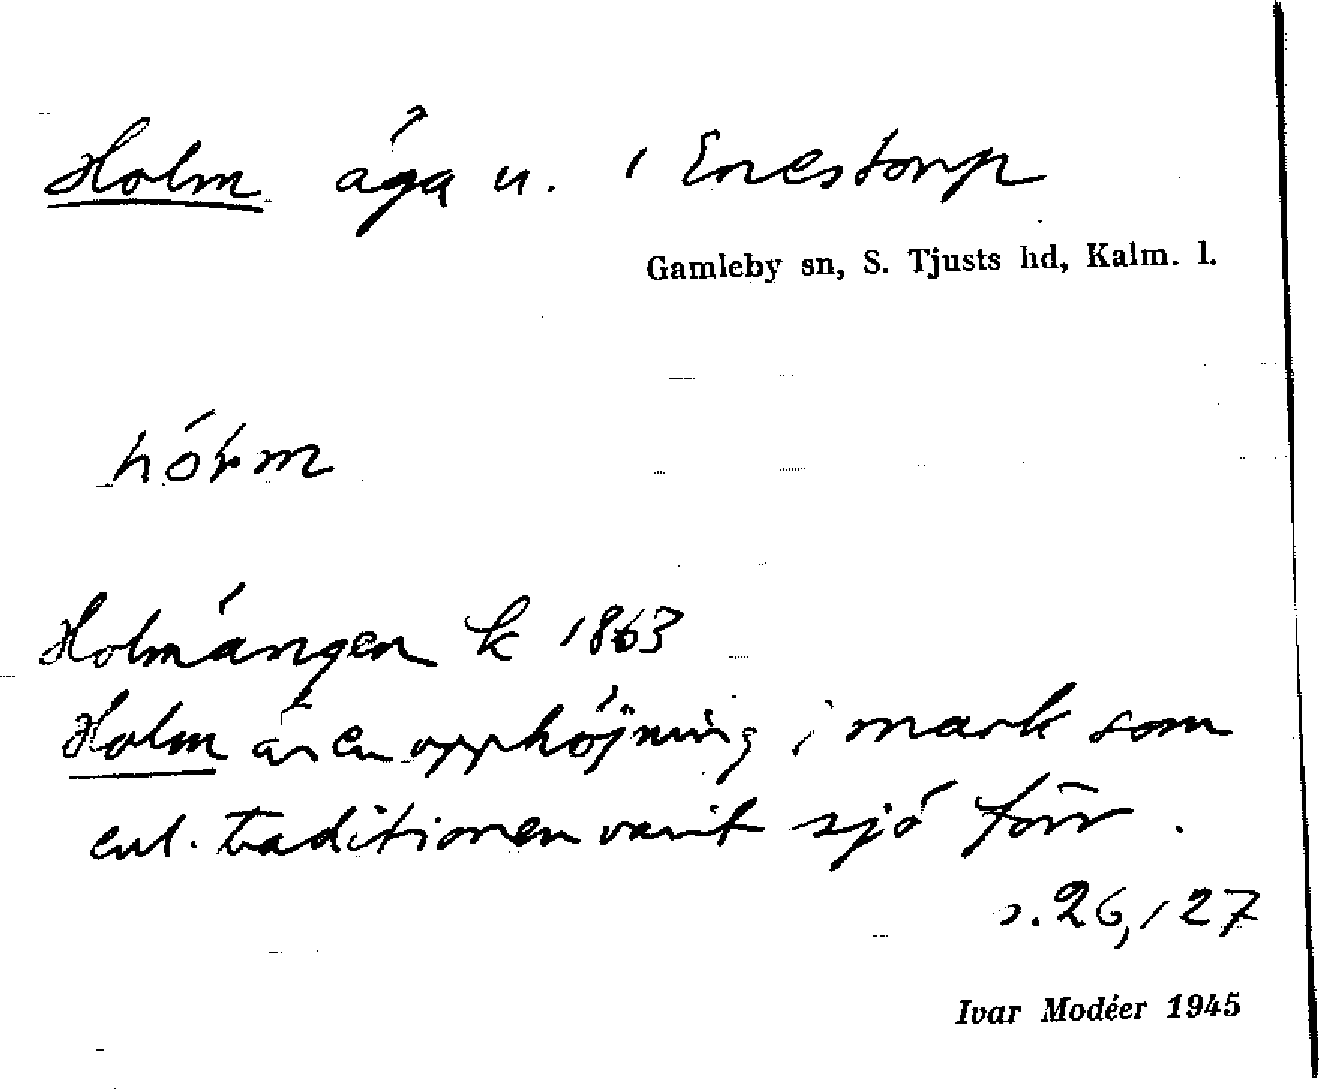 Holm äga u. i Enestorp
Gamleby sn, S. Tjusts hd, Kalm. l.
Holmängen k 1863
Holm är en upphöjning i mark som
enl. traditionen varit sjö förr.
s. 26, 127
Ivar Modéer 1945